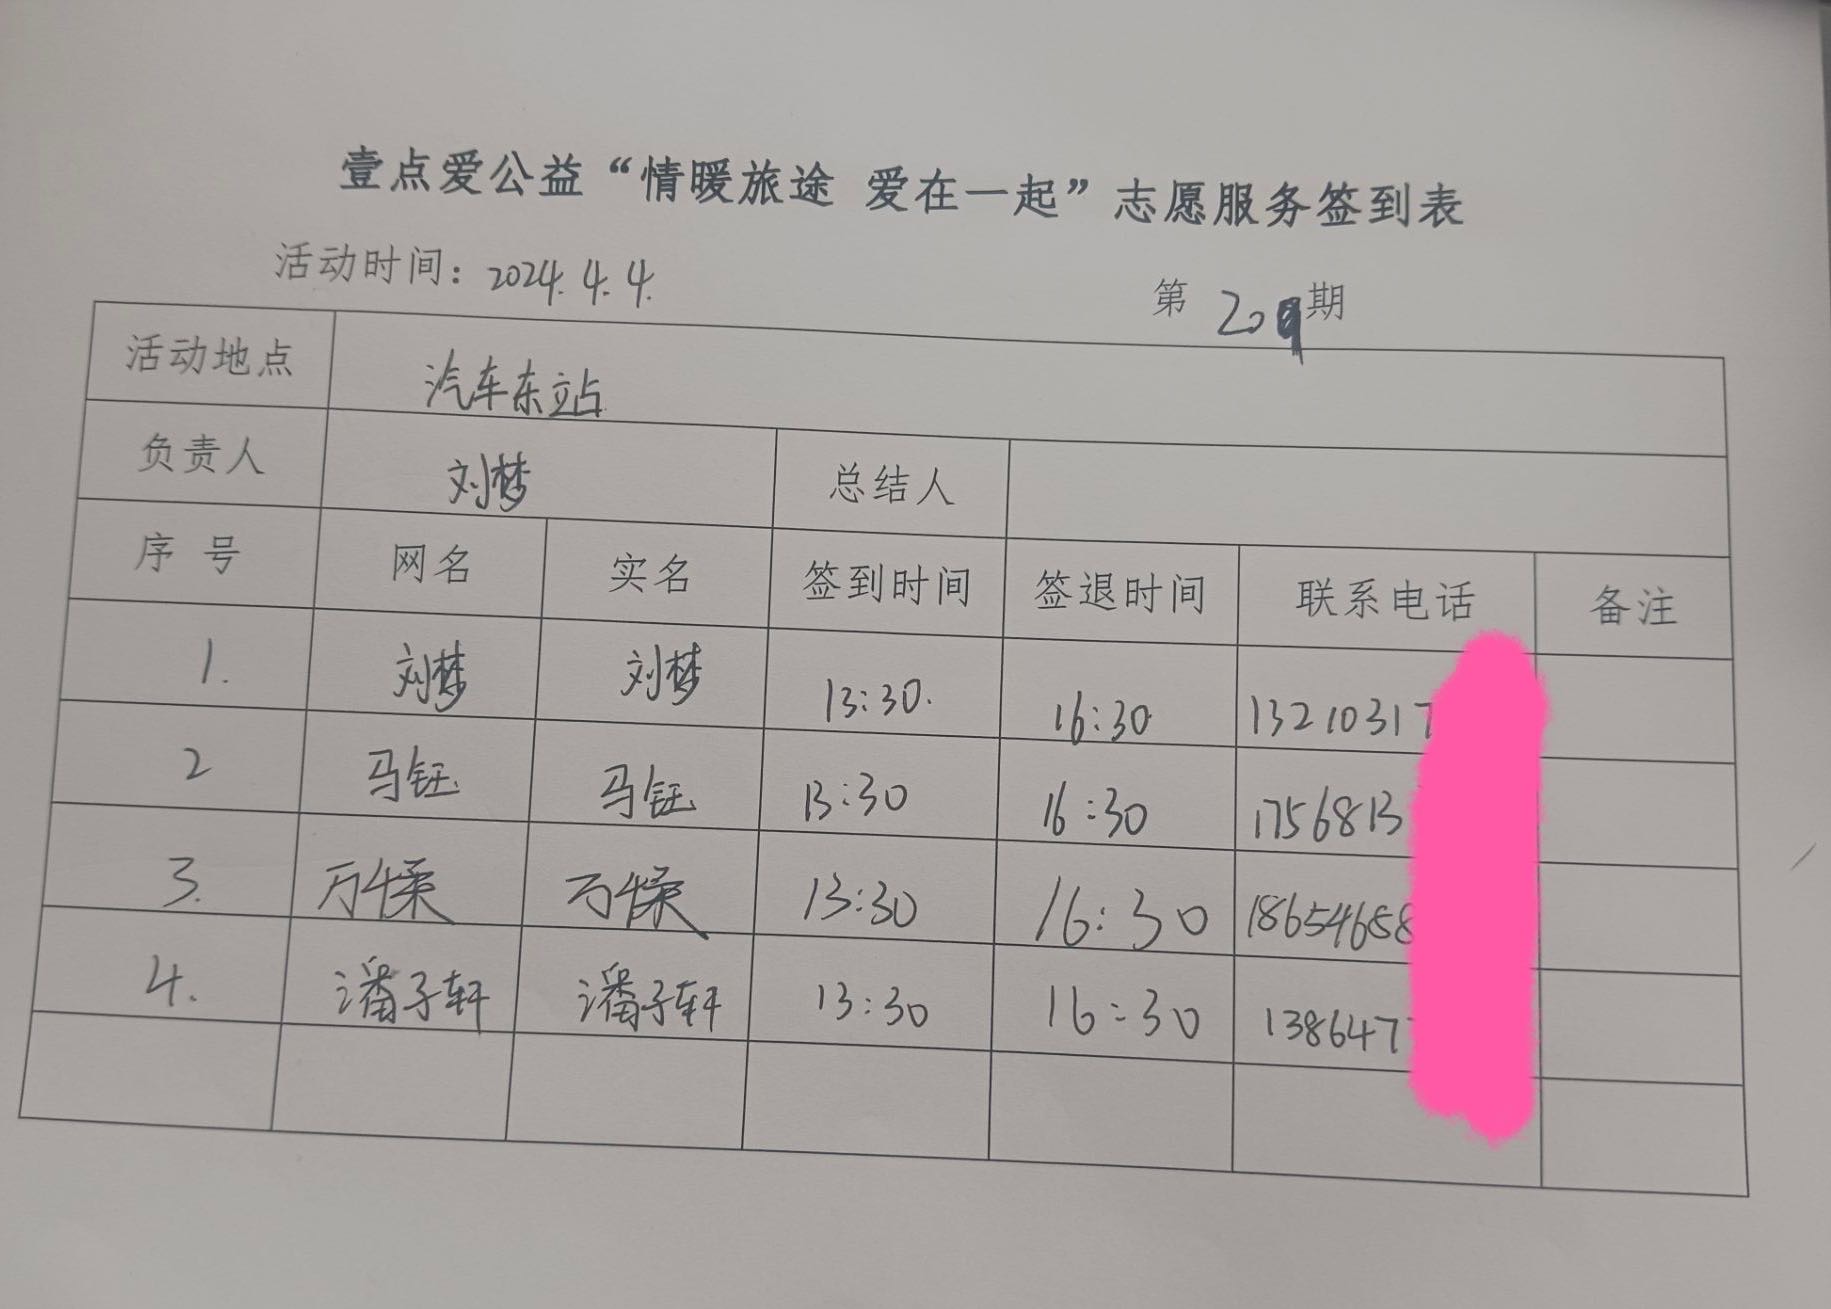 壹点爱公益“情暖旅途 爱在一起”志愿服务签到表
活动时间：2024.4.4.
第 209 期
活动地点 汽车东站
负责人 刘梦 总结人
序号 网名 实名 签到时间 签退时间 联系电话 备注
1. 刘梦 刘梦 13:30. 16:30 13210317
2 马钰 马钰 13:30 16:30 1756813
3. 13:30 16:30 18654658
4. 潘子轩 潘子轩 13:30 16:30 138647